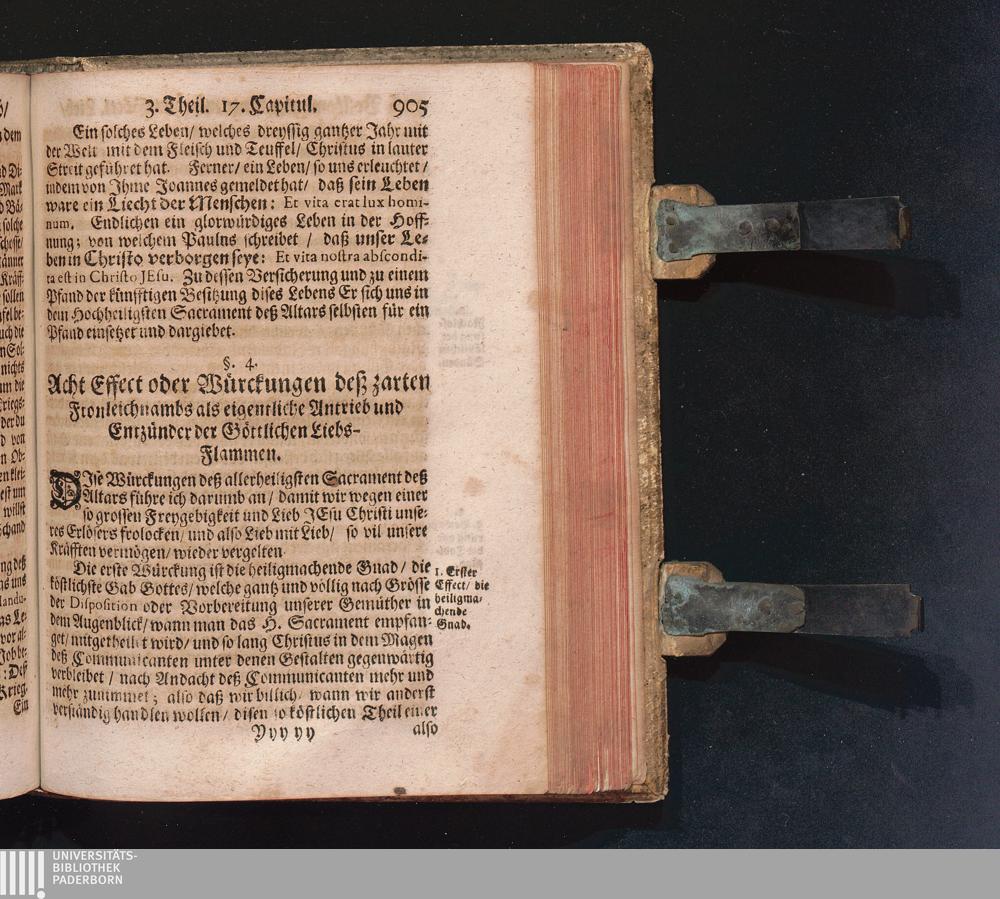 3. Theil. 17. Capitul. 905
Ein solches Leben/ welches dreyssig gantzer Jahr mit
der Welt mit dem Fleisch und Teuffel/ Christus in lauter
Streit geführet hat. Ferner/ ein Leben/ so uns erleuchtet/
indem von Ihme Joannes gemeldet hat/ daß sein Leben
ware ein Liecht der Menschen: Et vita erat lux homi-
num. Endlichen ein glorwürdiges Leben in der Hoff-
nung; von welchem Paulus schreibet / daß unser Le-
ben in Christo verborgen seye: Et vita nostra abscondi-
ta est in Christo JEsu. Zu dessen Versicherung und zu einem
Pfand der künfftigen Besitzung dises Lebens Er sich uns in
dem Hochheiligsten Sacrament deß Altars selbsten für ein
Pfand einsetzet und dargiebet.
§. 4.
Acht Effect oder Würckungen deß zarten
Fronleichnambs als eigentliche Antrieb und
Entzünder der Göttlichen Liebs-
Flammen.
DIse Würckungen deß allerheiligsten Sacrament deß
Altars führe ich darumb an/ damit wir wegen einer
so grossen Freygebigkeit und Lieb JEsu Christi unse-
res Erlösers frolocken/ und also Lieb mit Lieb/ so vil unsere
Kräfften vermögen/ wieder vergelten.
Die erste Würckung ist die heiligmachende Gnad/ die
köstlichste Gab Gottes/ welche gantz und völlig nach Grösse
der Disposition oder Vorbereitung unserer Gemüther in
dem Augenblick/ wann man das H. Sacrament empfan-
get/ mitgetheilet wird/ und so lang Christus in dem Magen
deß Communicanten unter denen Gestalten gegenwärtig
verbleibet / nach Andacht deß Communicanten mehr und
mehr zunimmet; also daß wir billich/ wann wir anderst
verständig handlen wollen/ disen so köstlichen Theil einer
Yyyyy also
1. Erster
Effect/ die
heiligma-
chende
Gnad.
UNIVERSITÄTS-
BIBLIOTHEK
PADERBORN